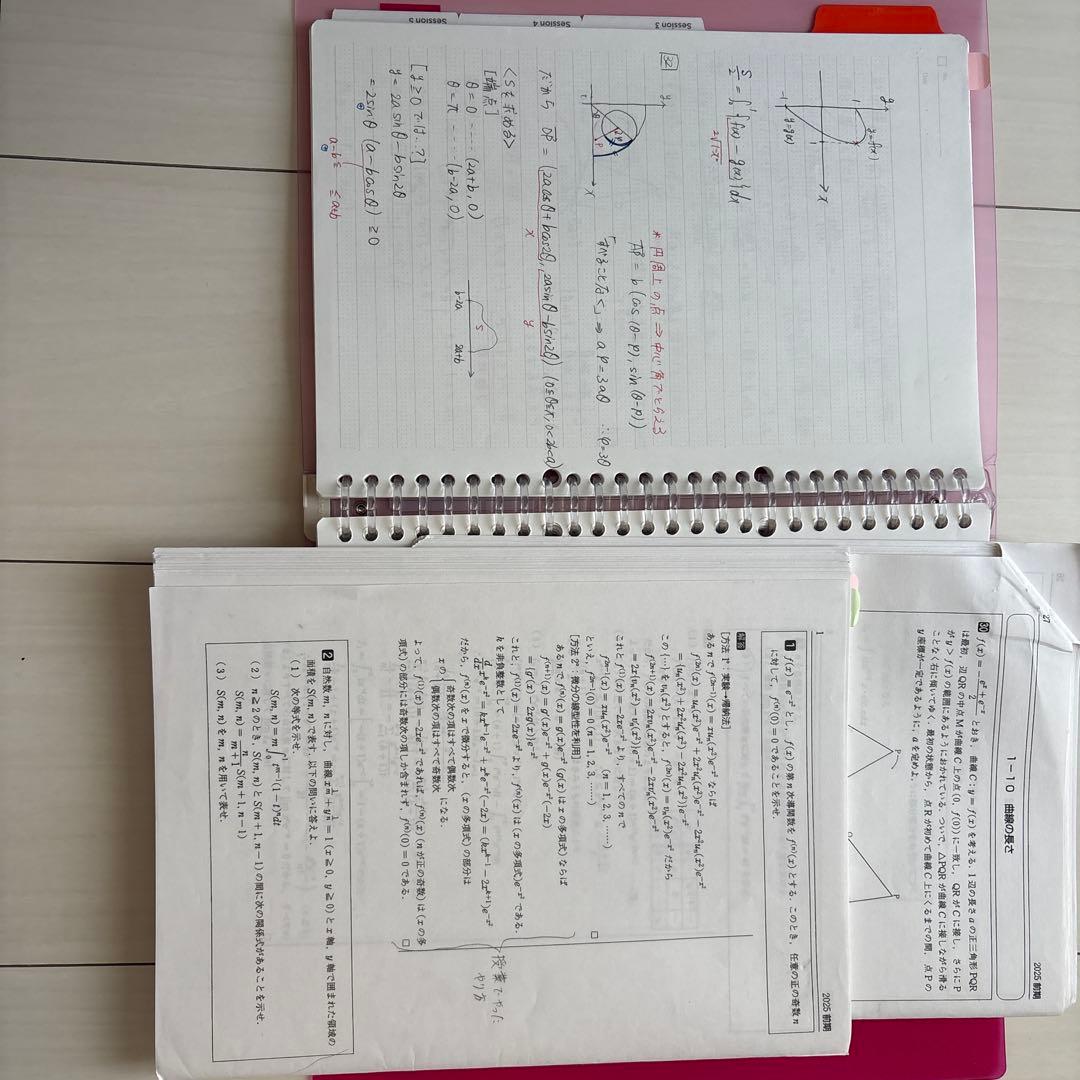 Session 3
Session 4
Session 5
y
1
y=f(x)
x
1
-1
y=g(x)
S/2 = ∫₀¹{f(x) - g(x)}dx
2√1-x²
32
y
x
*円周上の点 ⇒ 中心角でとらえる
AP = b (cos(θ-φ), sin(θ-φ))
「すべることなく」 ⇒ aφ=3aθ ∴φ=3θ
だから OP = (2acosθ+bcos2θ, 2asinθ-bsin2θ) (0≦θ≦π, 0<2b<a)
x
y
<Sを求める>
[端点]
θ=0 ..... (2a+b, 0)
θ=π ..... (b-2a, 0)
b-2a
S
2a+b
[y≧0では…?]
y=2asinθ-bsin2θ
=2sinθ (a-bcosθ) ≧0
⊕
a-b≦
≦a+b
⊕
27
2025 前期
1-10 曲線の長さ
30 f(x)= (eˣ+e⁻ˣ)/2 とおき,曲線 C:y=f(x) を考える.1 辺の長さ a の正三角形 PQR
は最初,辺 QR の中点 M が曲線 C 上の点 (0, f(0)) に一致し,QR が C に接し,さらに P
が y>f(x) の範囲にあるようにおかれている.ついで,△PQR が曲線 C に接しながら滑る
ことなく右に傾いてゆく.最初の状態から,点 R が初めて曲線 C 上にくるまでの間,点 P の
y 座標が一定であるように,a を定めよ.
P
P
1
2025 前期
1 f(x)=e^{-x²} とし,f(x) の第 n 次導関数を f⁽ⁿ⁾(x) とする.このとき,任意の正の奇数 n
に対して,f⁽ⁿ⁾(0)=0 であることを示せ.
解答
[方法 1°:実験→帰納法]
ある n で f^{(2n-1)}(x)=xuₙ(x²)e^{-x²} ならば
f^{(2n)}(x)=uₙ(x²)e^{-x²}+2x²u'ₙ(x²)e^{-x²}-2x²uₙ(x²)e^{-x²}
={uₙ(x²)+2x²u'ₙ(x²)-2x²uₙ(x²)}e^{-x²}
この {…} を vₙ(x²) とすると,f^{(2n)}(x)=vₙ(x²)e^{-x²} だから
f^{(2n+1)}(x)=2xv'ₙ(x²)e^{-x²}-2xvₙ(x²)e^{-x²}
=2x{v'ₙ(x²)-vₙ(x²)}e^{-x²}
これと f^{(1)}(x)=-2xe^{-x²} より,すべての n で
f^{(2n-1)}(x)=xuₙ(x²)e^{-x²} (n=1, 2, 3, ……)
といえ,f^{(2n-1)}(0)=0 (n=1, 2, 3, ……)
□
[方法 2°:微分の線型性を利用]
ある n で f^{(n)}(x)=g(x)e^{-x²} (g(x) は x の多項式) ならば
f^{(n+1)}(x)=g'(x)e^{-x²}+g(x)e^{-x²}(-2x)
={g'(x)-2xg(x)}e^{-x²}
これと,f^{(1)}(x)=-2xe^{-x²} より,f^{(n)}(x) は (x の多項式)e^{-x²} である.
k を非負整数として
d/dx xᵏe^{-x²}=kx^{k-1}e^{-x²}+xᵏe^{-x²}(-2x)=(kx^{k-1}-2x^{k+1})e^{-x²}
だから,f^{(n)}(x) を x で微分すると,(x の多項式) の部分は
x の { 奇数次の項はすべて偶数次
偶数次の項はすべて奇数次 になる.
よって,f^{(1)}(x)=-2xe^{-x²} であれば,f^{(n)}(x) (n が正の奇数) は (x の多
項式) の部分には奇数次の項しか含まれず,f^{(n)}(0)=0 である.
□
授業でやった
やり方
2 自然数 m, n に対し,曲線 x^{1/m}+y^{1/n}=1 (x≧0, y≧0) と x 軸,y 軸で囲まれた領域の
面積を S(m, n) で表す.以下の問いに答えよ.
(1) 次の等式を示せ.
S(m, n)=m∫₀¹t^{m-1}(1-t)ⁿdt
(2) n≧2 のとき,S(m, n) と S(m+1, n-1) の間に次の関係式があることを示せ.
S(m, n)= n/(m+1) S(m+1, n-1)
(3) S(m, n) を m, n を用いて表せ.